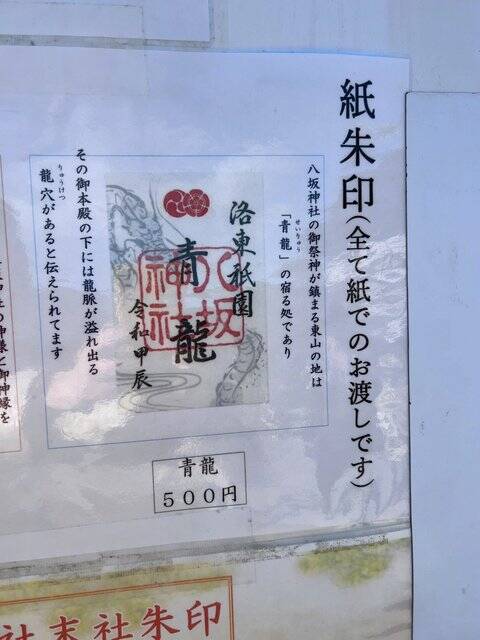 紙朱印(全て紙でのお渡しです)
八坂神社の御祭神が鎮まる東山の地は
「青龍」の宿る処であり
せいりゅう
洛東祇園
青龍
八坂神社
令和甲辰
その御本殿の下には龍脈が溢れ出る
龍穴があると伝えられてます
りゅうけつ
青龍
500円
社末社朱印